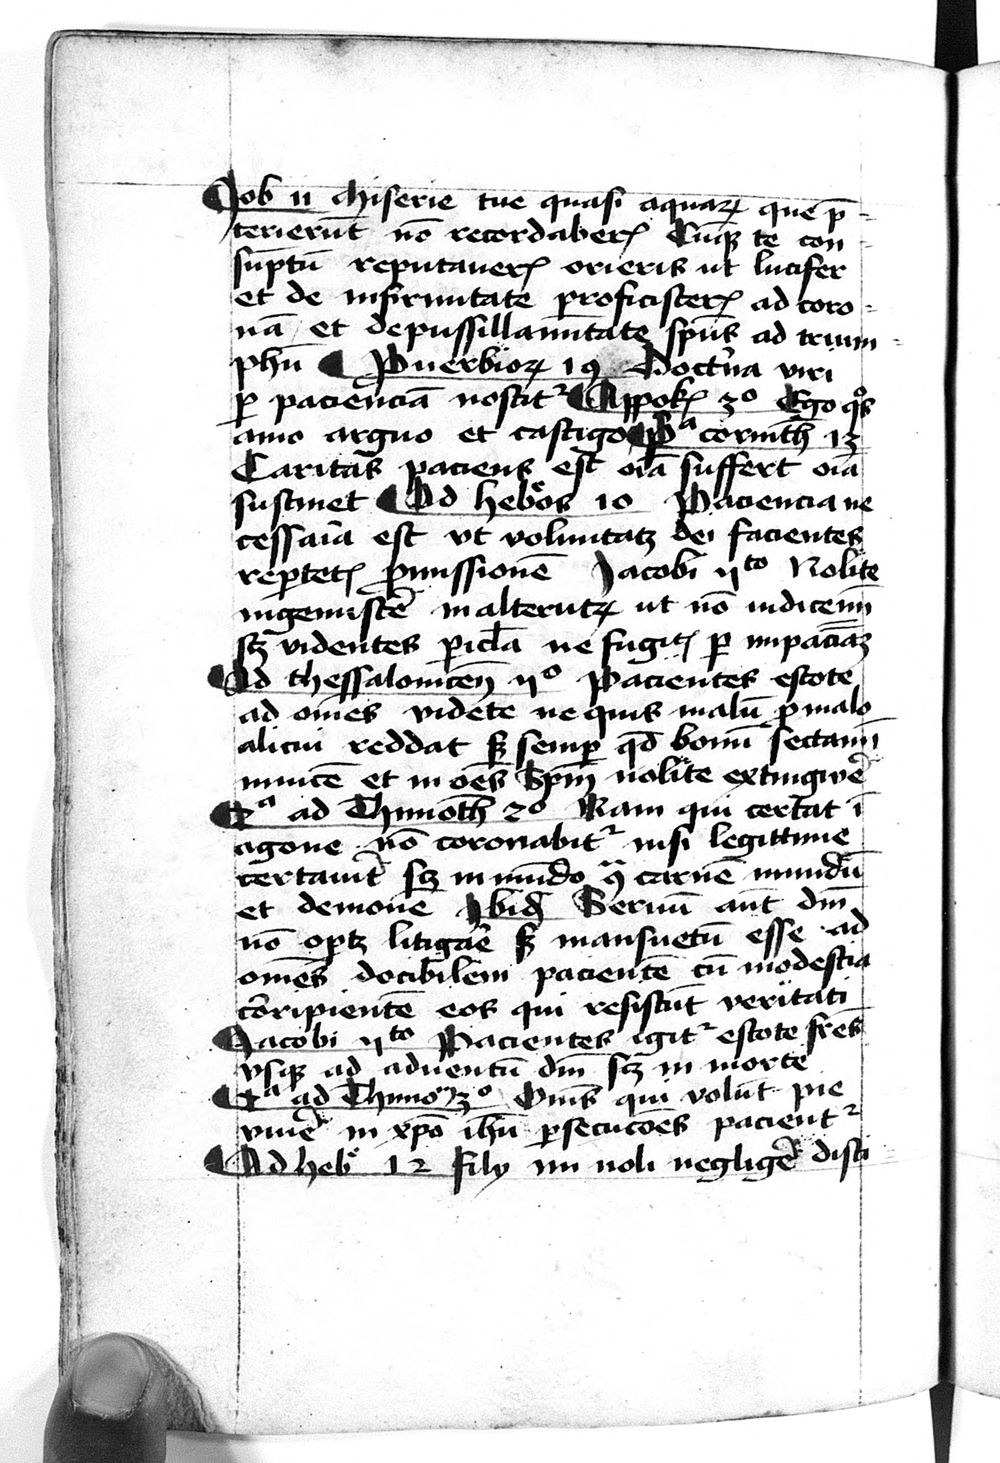 Job 11 Miserie tue quasi aquaꝝ que p̄
terierūt nō recordaberꝭ Cūqꝫ te con
sūptū reputauerꝭ orieris ut lucifer
et de infirmitate proficisterꝭ ad coro
nā et de pussillanītate sp̄us ad trium
phū Puerbioꝝ 19 Doctⁱna viri
ꝑ pacienciā noscitᷣ Appokꝭ 3º Ego qºs
amo arguo et castigo Pª corinth 13
Caritas paciens est oīa suffert oīa
sustinet Ad hebºos 10 Paciencia ne
cessaīa est vt voluntatꝫ dei facientes
reportetꝭ ꝓmissionē Jacobi iiᵗᵒ Nolite
ingemiscē in alterutꝝ ut nō iudicemī
scꝫ videntes picl̄a ne fugitꝭ ꝑ impaciāꝫ
Ad thessalonicen̄ iiº Pacientes estote
ad om̄es videte ne quis malū ꝓ malo
alicui reddat sꝫ semꝑ qd̄ bonū sectamī
inuicē et in oēs Spm̄ nolite extingwē
2ª ad Thimoth 2º Nam qui certat ī
agone nō coronabitᷣ nisi legittime
certauīt scꝫ in mūdo ꝯ̈ carnē mundū
et demonē Ibid̄ Seruū aūt dm̄
nō oportꝫ litigaē sꝫ mansuetū esse ad
om̄es docibilem pacientē cū modestia
cōripientē eos qui resistūt veritati
Jacobi iiᵗᵒ Pacientes igitᷣ estote fr̄es
vsqꝫ ad aduentū dm̄ scꝫ in morte
2ª ad Thimo 3º Om̄s qui volūt pie
viuē in xp̄o ih̄u ꝑsecucōes pacientᷣ
Ad heb 12 fily mi noli negligē disci